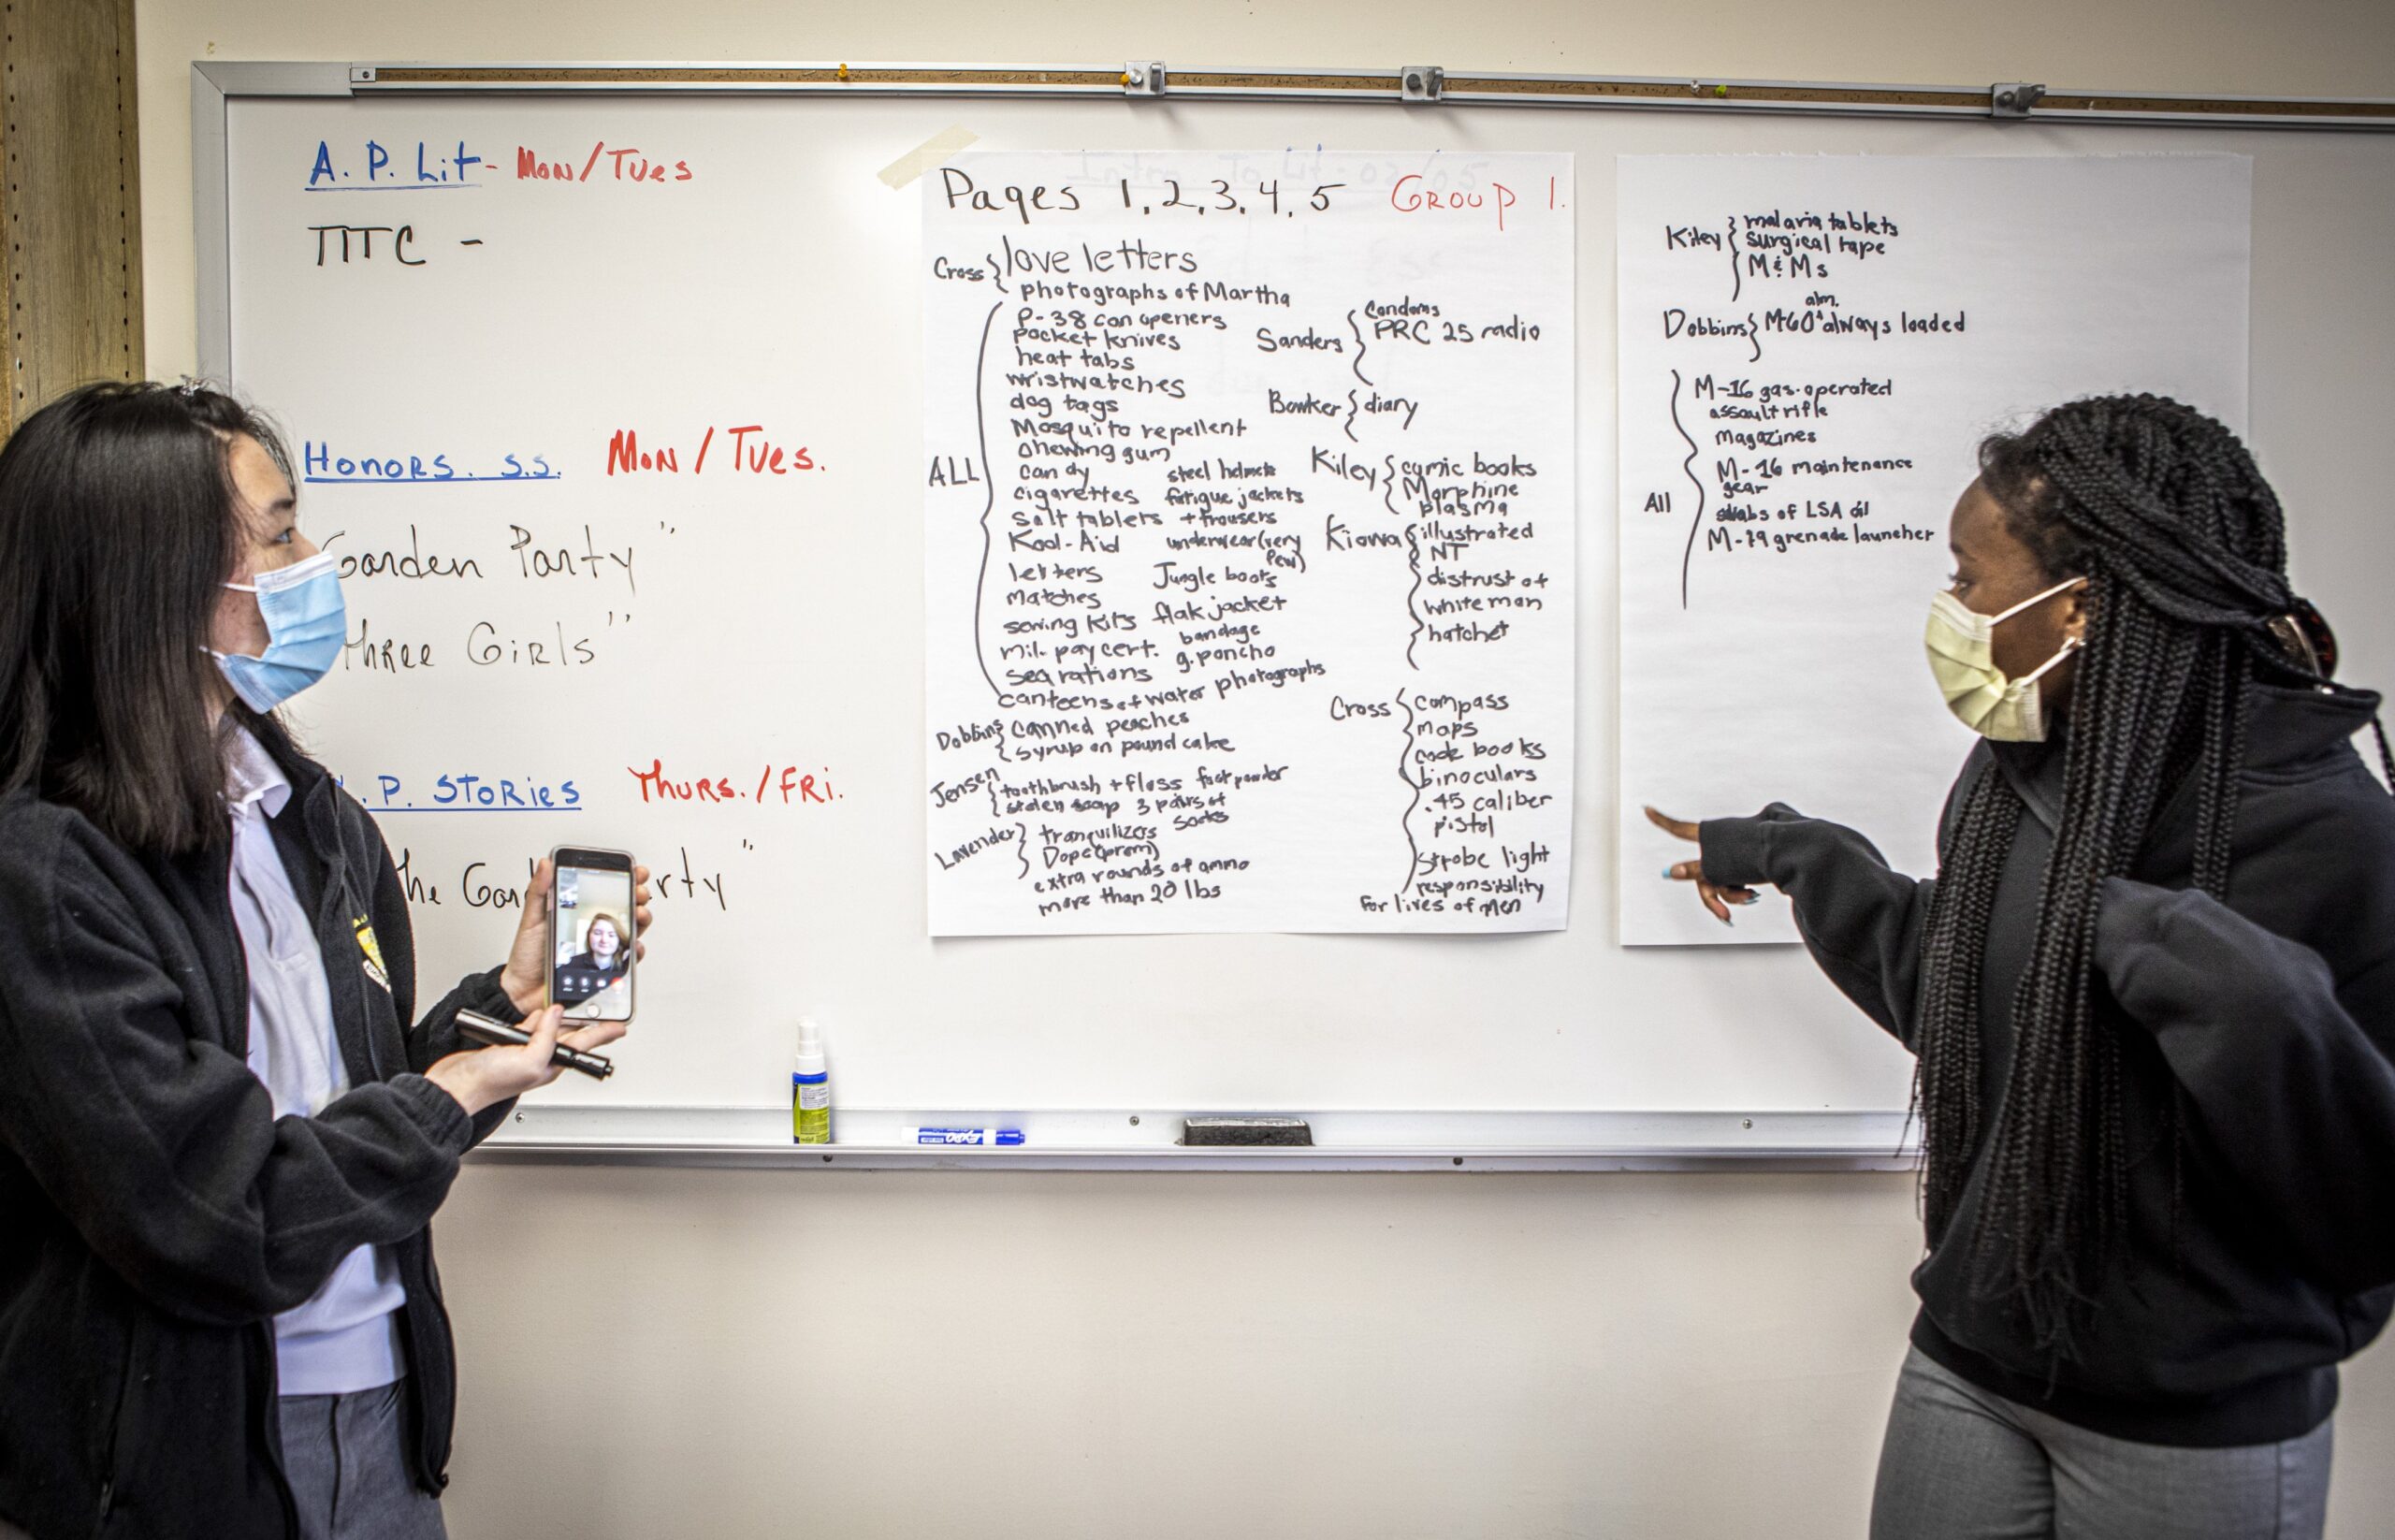 A. P. Lit - Mon/Tues
TITC -
Honors. S.S. Mon / Tues.
Garden Party"
Three Girls"
. P. Stories Thurs. / Fri.
he Gar rty"
Pages 1, 2, 3, 4, 5 Group 1.
Cross { love letters
photographs of Martha
ALL
P-38 can openers
pocket knives
heat tabs
wristwatches
dog tags
Mosquito repellent
chewing gum
candy
cigarettes
salt tablets
Kool-Aid
letters
matches
sewing kits
mil. pay cert.
sea rations
canteens of water
steel helmets
fatigue jackets
+ trousers
underwear (very
few)
Jungle boots
flak jacket
bandage
g. poncho
photographs
Dobbins { canned peaches
syrup on pound cake
Jensen { toothbrush + floss foot powder
stolen soap 3 pairs of
socks
Lavender } tranquilizers
Dope (prem)
extra rounds of ammo
more than 20 lbs
Sanders { Condoms
PRC 25 radio
Bowker { diary
Kiley { comic books
Morphine
plasma
Kiowa { illustrated
NT
distrust of
white man
hatchet
Cross { compass
maps
code books
binoculars
.45 caliber
pistol
strobe light
responsibility
for lives of men
Kiley { malaria tablets
surgical tape
M&Ms
Dobbins } M-60 alm. always loaded
All
M-16 gas-operated
assault rifle
magazines
M-16 maintenance
gear
of LSA oil
M-79 grenade launcher
EXPO